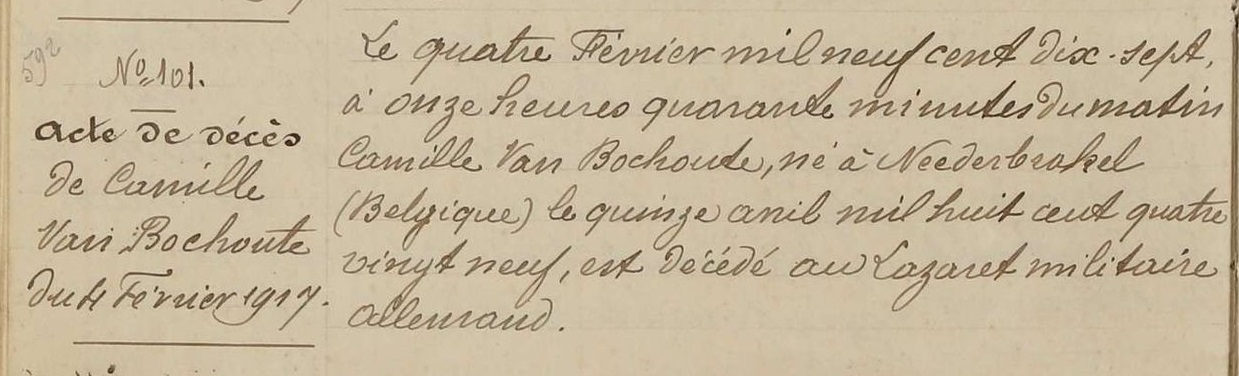 592
No. 101.
acte de décès
de Camille
Van Bochoute
du 4 Février 1917.
Le quatre Février mil neuf cent dix-sept,
à onze heures quarante minutes du matin
Camille Van Bochoute, né à Neederbrakel
(Belgique) le quinze avril mil huit cent quatre
vingt neuf, est décédé au Lazaret militaire
allemand.